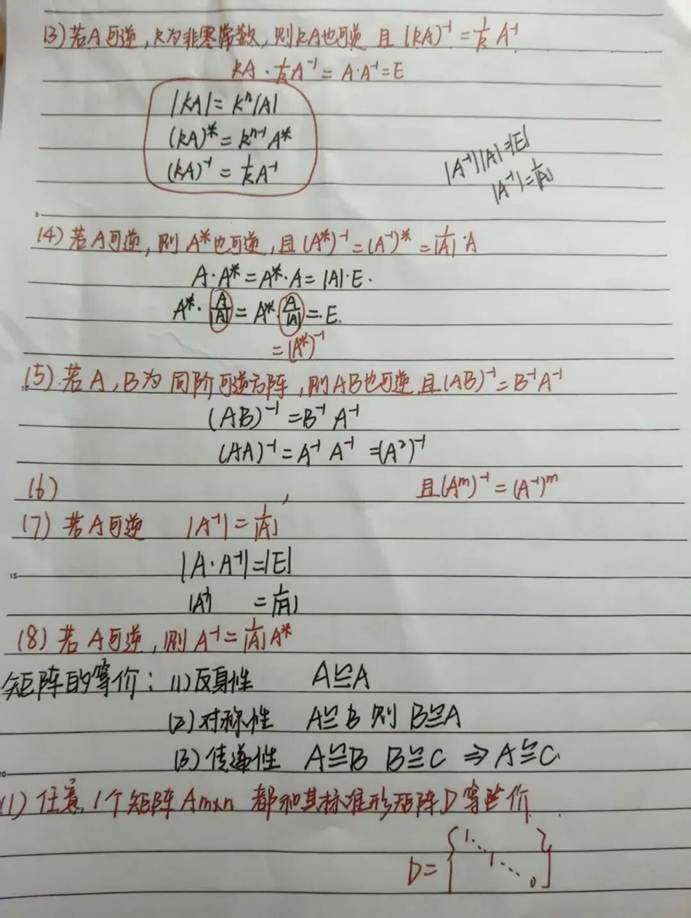 (3) 若A可逆,k为非零常数,则kA也可逆 且 (kA)⁻¹=1/k A⁻¹
kA·1/k A⁻¹=A·A⁻¹=E
|kA|=kⁿ|A|
(kA)*=kⁿ⁻¹A*
(kA)⁻¹=1/k A⁻¹
|A⁻¹||A|=|E|
|A⁻¹|=1/|A|
(4) 若A可逆,则A*也可逆,且(A*)⁻¹=(A⁻¹)*=1/|A|·A
A·A*=A*·A=|A|·E.
A*·A/|A|=A*·A/|A|=E.
=(A*)⁻¹
(5) 若A,B为同阶可逆方阵,则AB也可逆,且(AB)⁻¹=B⁻¹A⁻¹
(AB)⁻¹=B⁻¹A⁻¹
(AA)⁻¹=A⁻¹A⁻¹=(A²)⁻¹
(6) , 且(Aᵐ)⁻¹=(A⁻¹)ᵐ
(7) 若A可逆 |A⁻¹|=1/|A|
|A·A⁻¹|=|E|
|A⁻¹| =1/|A|
(8) 若A可逆,则A⁻¹=1/|A| A*
矩阵的等价:(1)反身性 A≌A
(2)对称性 A≌B 则 B≌A
(3)传递性 A≌B B≌C ⇒A≌C
(1) 任意1个矩阵Am×n 都和其标准形矩阵D等价
D=[1 ⋱ 1 ⋱ 0]